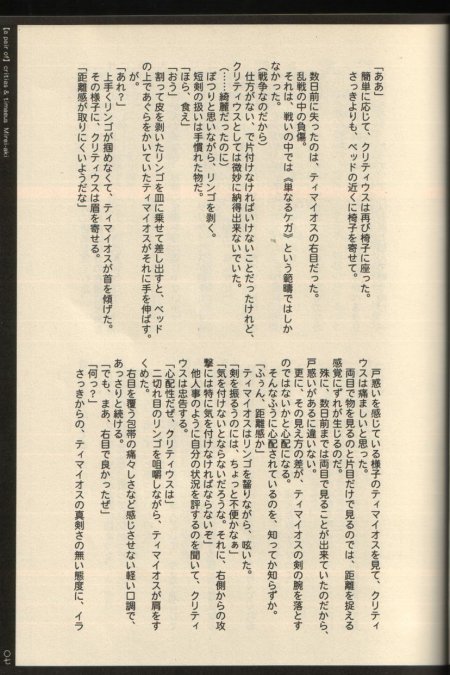 「ああ」
簡単に応じて、クリティウスは再び椅子に座った。
さっきよりも、ベッドの近くに椅子を寄せて。
数日前に失ったのは、ティマイオスの右目だった。
乱戦の中の負傷。
それは、戦いの中では《単なるケガ》という範疇ではしか
なかった。
（戦争なのだから）
仕方がない、で片付けなければいけないことだったけれど、
クリティウスとしては微妙に納得出来ないでいた。
（……綺麗だったのに）
ぽつりと思いながら、リンゴを剥く。
短剣の扱いは手慣れた物だ。
「ほら、食え」
「おう」
割って皮を剥いたリンゴを皿に乗せて差し出すと、ベッド
の上であぐらをかいていたティマイオスがそれに手を伸ばす。
が。
「あれ？」
上手くリンゴが掴めなくて、ティマイオスが首を傾げた。
その様子に、クリティウスは眉を寄せる。
「距離感が取りにくいようだな」
戸惑いを感じている様子のティマイオスを見て、クリティ
ウスは痛ましいと思った。
両目で物を見るのと片目だけで見るのでは、距離を捉える
感覚にずれが生じるのだ。
殊に、数日前までは両目で見ることが出来ていたのだから、
戸惑いがあるに違いない。
更に、その見え方の差が、ティマイオスの剣の腕を落とす
のではないかと心配になる。
そんなふうに心配されているのを、知ってか知らずか。
「ふぅん、距離感か」
ティマイオスはリンゴを齧りながら、呟いた。
「剣を振るうのには、ちょっと不便かなぁ」
「気を付けないとならないだろうな。それに、右側からの攻
撃には特に気を付けなければならないぞ」
他人事のように自分の状況を評するのを聞いて、クリティ
ウスは忠告する。
「心配性だぜ、クリティウスは」
二切れ目のリンゴを咀嚼しながら、ティマイオスが肩をす
くめた。
右目を覆う包帯の痛々しさなど感じさせない軽い口調で、
あっさりと続ける。
「でも、まあ、右目で良かったぜ」
「何っ？」
さっきからの、ティマイオスの真剣さの無い態度に、イラ
【a pair of】 critias & timaeus Mirei-aki
07